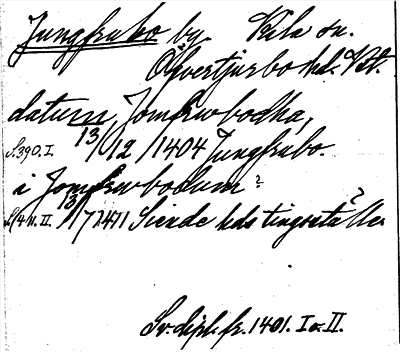 Jungfrubo by. Kila sn.
Ölfvertjurbo hd. Vstm.
datum, Jomfrwbodha,
S. 390. I. 13/12 1404 Jungfrubo.
i Jomfrwbodum?
13/7 1411 Siende hds tingsställe?
Sv. dipl. fr. 1401. I o. II.